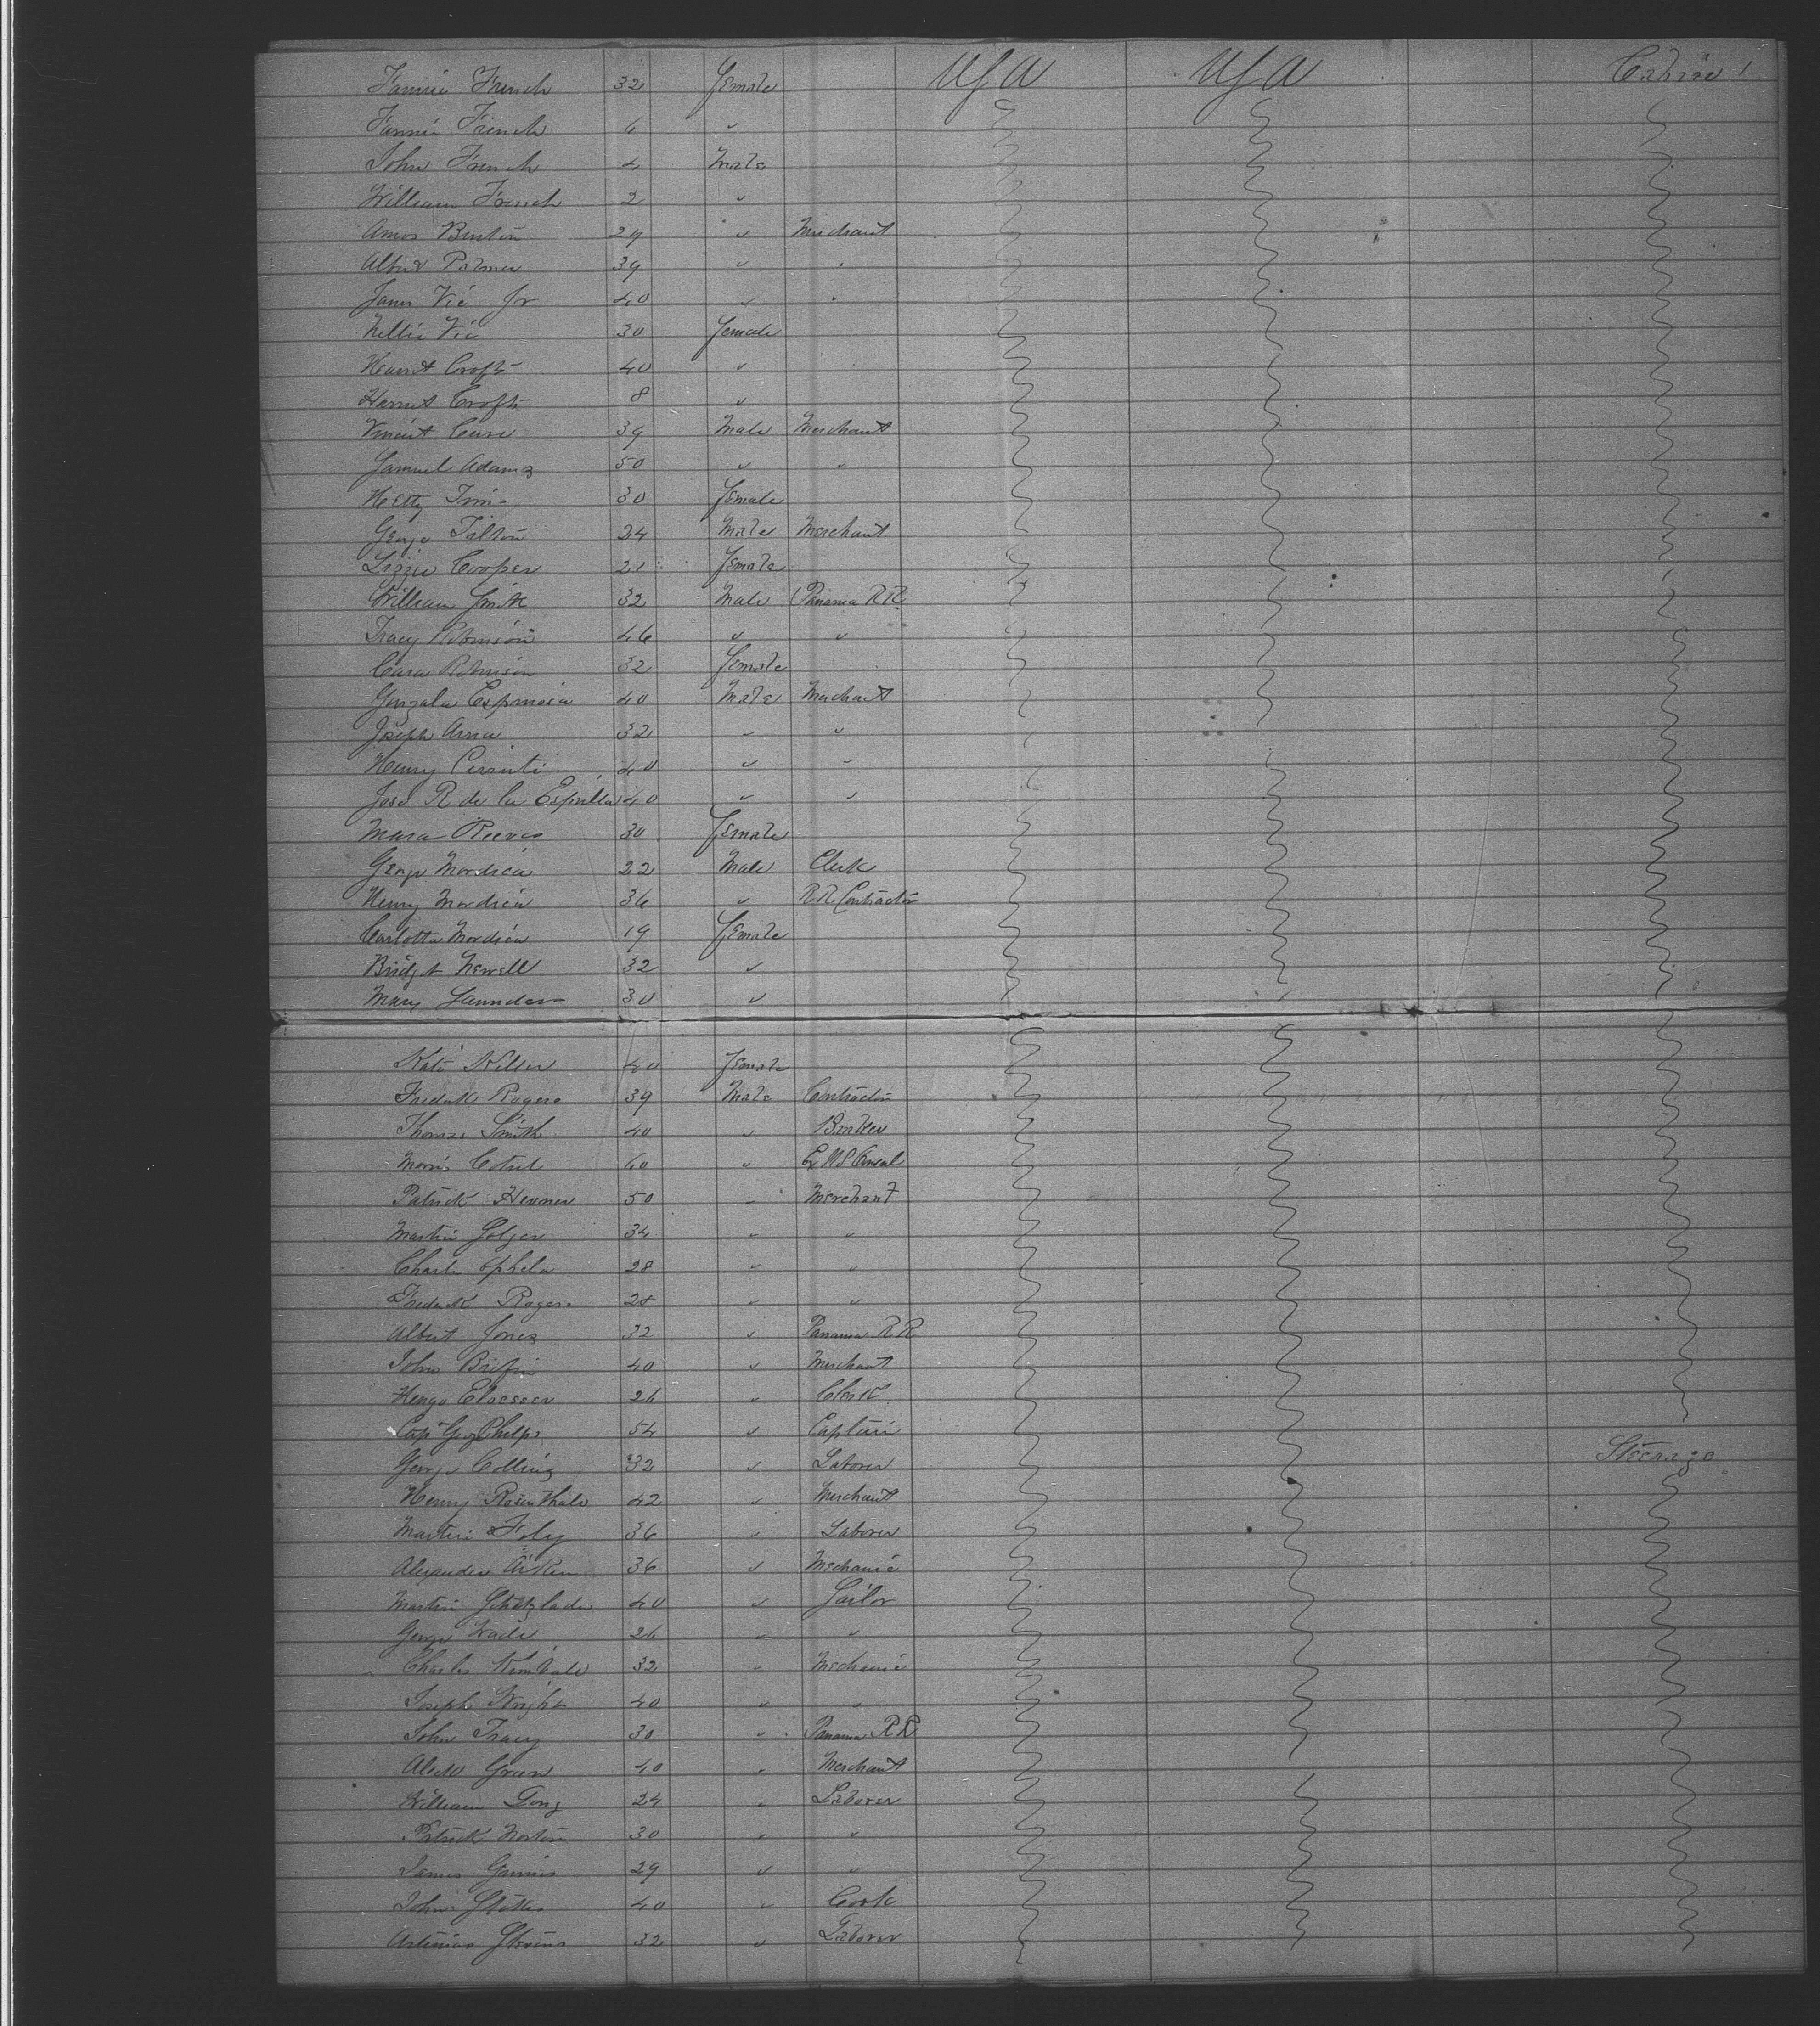 Fannie French 32 female USA USA Cabin
Fannie French 6 "
John French 4 Male
William French 2 "
Amos Benton 29 " Merchant
Albert Palmer 39 " "
James Vie Jr 40 " "
Nellie Vie 30 female
Harriet Crofts 40 "
Harriet Crofts 8 "
Vincent 39 Male Merchant
Samuel Adams 50 " "
Hetty 30 female
George Tilton 24 Male Merchant
Lizzie Cooper 21 female
William Smith 32 Male Panama RR
Tracy Robinson 46 " "
Cara Robinson 32 female
Gonzala Espinosa 40 Male Merchant
Joseph Arsa 32 " "
Henry 40 " "
Jose R de la Espriella 40 " "
Mara Reeves 30 female
George Mordica 22 Male Clerk
Henry Mordica 36 " RR Contractor
Carlotta Mordica 19 female
Bridget Newell 32 "
Mary Saunders 30 "
Kate 40 female
Fredrick Rogers 39 Male Contractor
Thomas Smith 40 "
Morris 60 " Ex US Consul
Patrick 50 " Merchant
Martin 34 " "
Charles 28 " "
Fredrick Rogers 28 " "
Albert Jones 32 " Panama RR
John 40 " Merchant
26 " Clerk
Capt Geo Phelps 54 " Captain
George Collins 32 " Laborer Steerage
Henry Rosenthale 42 " Merchant
Martin Foly 36 " Laborer
Alexander Aitken 36 " Mechanic
Martin 40 " Sailor
George Wade 26 " "
Charles Kimbale 32 " Mechanic
Joseph Wright 40 " "
John Tracy 30 " Panama RR
Green 40 " Merchant
William 24 " Laborer
Patrick 30 " "
James 29 " "
John Stokes 40 " Cook
Stevens 32 " Laborer